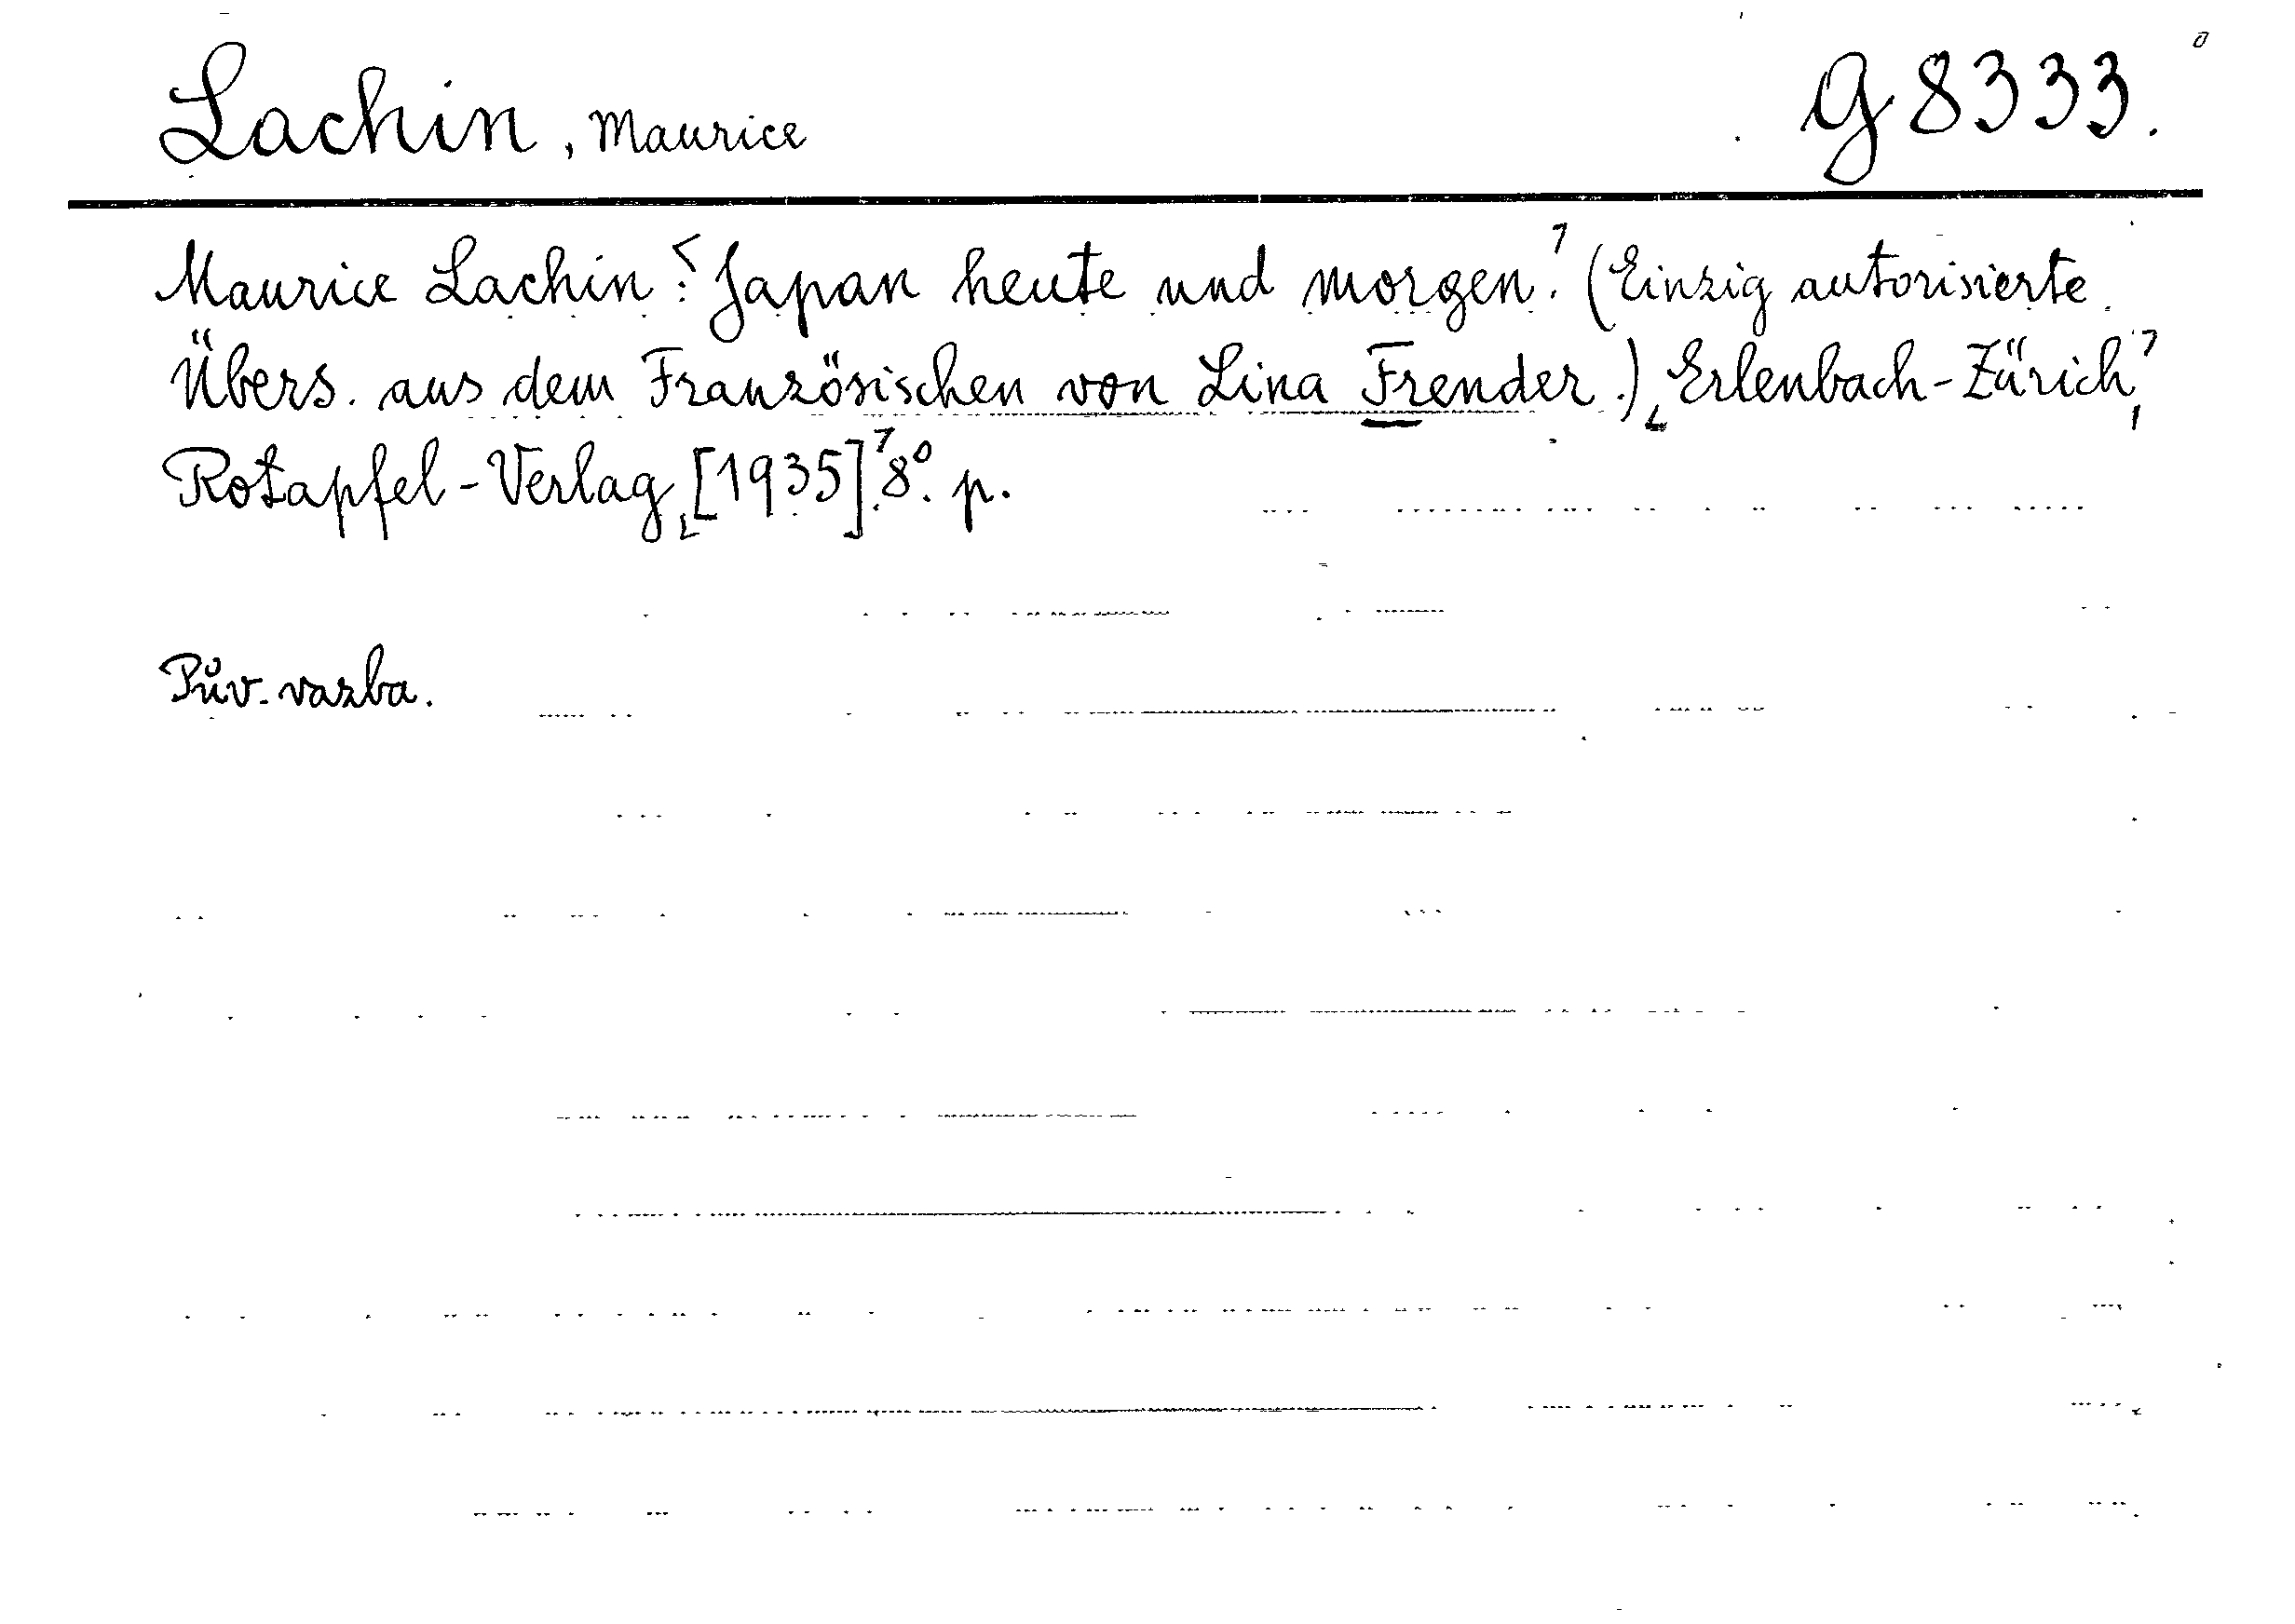 Lachin, Maurice
G 8333.
Maurice Lachin: Japan heute und morgen. (Einzig autorisierte
Übers. aus dem Französischen von Lina Frender.) Erlenbach-Zürich,
Rotapfel-Verlag, [1935]. 8°. p.
Pův. vazba.